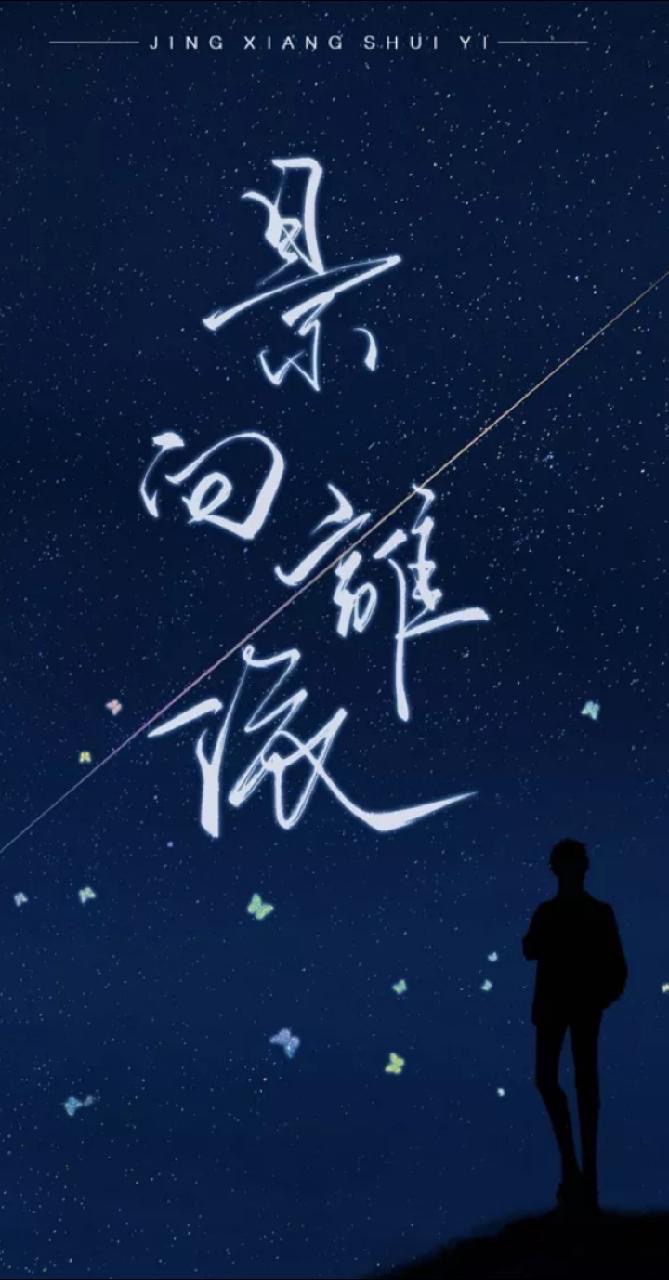 JING XIANG SHUI YI
景向誰依